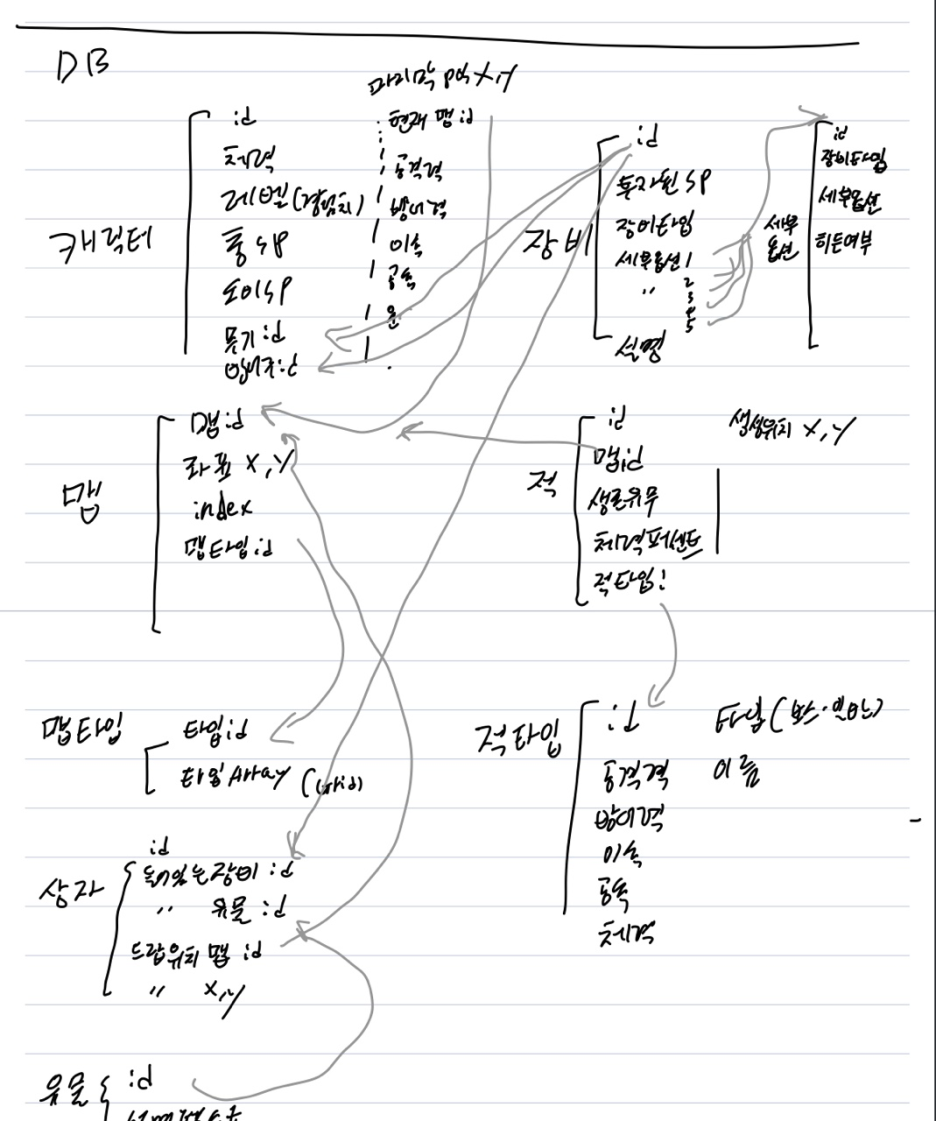 DB
캐릭터
id
체력
레벨(경험치)
총 SP
잔여SP
무기 id
방어구 id
마지막 위치 X,Y
현재 맵 id
공격력
방어력
이속
공속
운
장비
id
투자된 SP
장비타입
세부옵션 1
" 2
3
4
5
설명
세부
옵션
id
장비타입
세부옵션
히든여부
맵
맵 id
좌표 X,Y
index
맵타입 id
적
id
맵id
생존유무
체력퍼센트
적타입!
생성위치 X,Y
맵타입
타입id
타일 Array (grid)
적타입
id
공격력
방어력
이속
공속
체력
타입(보스·일반)
이름
상자
id
들어있는 장비 id
" 유물 id
드랍위치 맵 id
" X,Y
유물
id